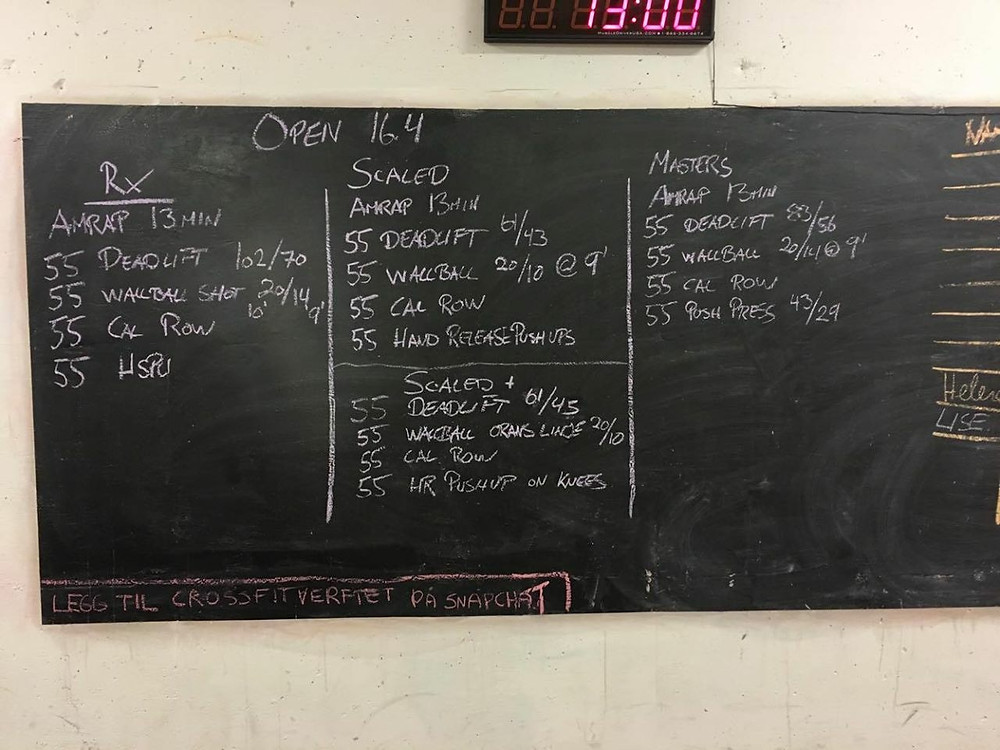 13:00
OPEN 16.4
Rx
AMRAP 13 MIN
55 DEADLIFT 102/70
55 WALLBALL SHOT 20/14
10' 9'
55 CAL ROW
55 HSPU
SCALED
AMRAP 13 MIN
55 DEADLIFT 61/43
55 WALLBALL 20/10 @ 9'
55 CAL ROW
55 HAND RELEASE PUSH UPS
SCALED +
55 DEADLIFT 61/45
55 WALLBALL ORANS LINJE 20/10
55 CAL ROW
55 HR PUSHUP ON KNEES
MASTERS
AMRAP 13 MIN
55 DEADLIFT 83/56
55 WALLBALL 20/14 @ 9'
55 CAL ROW
55 PUSH PRESS 43/29
Helen
LISE
LEGG TIL CROSSFITVERFTET PÅ SNAPCHAT